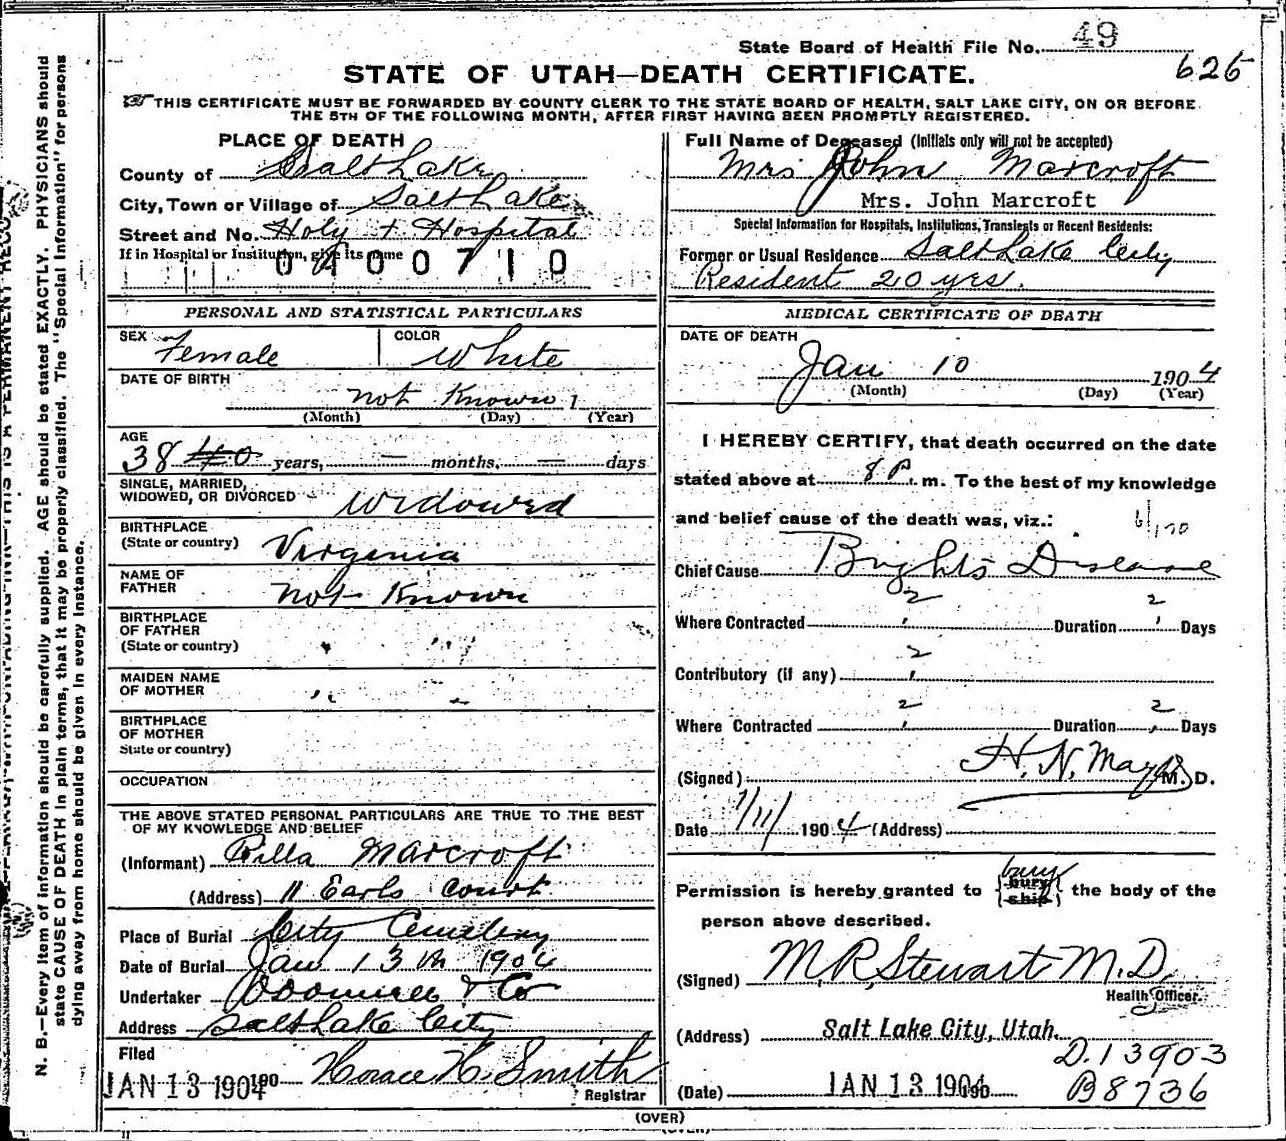 State Board of Health File No. 49
625
STATE OF UTAH—DEATH CERTIFICATE.
THIS CERTIFICATE MUST BE FORWARDED BY COUNTY CLERK TO THE STATE BOARD OF HEALTH, SALT LAKE CITY, ON OR BEFORE
THE 5TH OF THE FOLLOWING MONTH, AFTER FIRST HAVING BEEN PROMPTLY REGISTERED.
PLACE OF DEATH
County of Salt Lake
City, Town or Village of Salt Lake
Street and No. Holy + Hospital
If in Hospital or Institution, give its name
0400710
PERSONAL AND STATISTICAL PARTICULARS
SEX Female COLOR White
DATE OF BIRTH
not Known 1
(Month) (Day) (Year)
AGE
38 40 years, — months, — days
SINGLE, MARRIED,
WIDOWED, OR DIVORCED Widowed
BIRTHPLACE
(State or country) Virginia
NAME OF
FATHER not Known
BIRTHPLACE
OF FATHER
(State or country) " "
MAIDEN NAME
OF MOTHER " "
BIRTHPLACE
OF MOTHER
State or country)
OCCUPATION
THE ABOVE STATED PERSONAL PARTICULARS ARE TRUE TO THE BEST
OF MY KNOWLEDGE AND BELIEF
(Informant) Rilla Marcroft
(Address) 11 Earls Court
Place of Burial City Cemetery
Date of Burial Jan 13th 1904
Undertaker & Co
Address Salt Lake City
Filed
JAN 13 1904 190 Horace H. Smith
Registrar
Full Name of Deceased (Initials only will not be accepted)
Mrs John Marcroft
Mrs. John Marcroft
Special Information for Hospitals, Institutions, Transients or Recent Residents:
Former or Usual Residence Salt Lake City
Resident 20 yrs.
MEDICAL CERTIFICATE OF DEATH
DATE OF DEATH
Jan 10 1904
(Month) (Day) (Year)
I HEREBY CERTIFY, that death occurred on the date
stated above at 8 P. m. To the best of my knowledge
and belief cause of the death was, viz.: 6/120
Chief Cause Brights Disease
Where Contracted ? Duration ? Days
Contributory (if any) ?
Where Contracted ? Duration ? Days
(Signed) H. N. Mayo M. D.
Date 1/11/ 1904 (Address)
Permission is hereby granted to {bury ship} bury the body of the
person above described.
(Signed) M. R. Stewart M. D.
Health Officer.
(Address) Salt Lake City, Utah.
D. 13903
(Date) JAN 13 1904 190 B 8736
(OVER)
N. B.—Every item of information should be carefully supplied. AGE should be stated EXACTLY. PHYSICIANS should
state CAUSE OF DEATH in plain terms, that it may be properly classified. The "Special Information" for persons
dying away from home should be given in every instance.